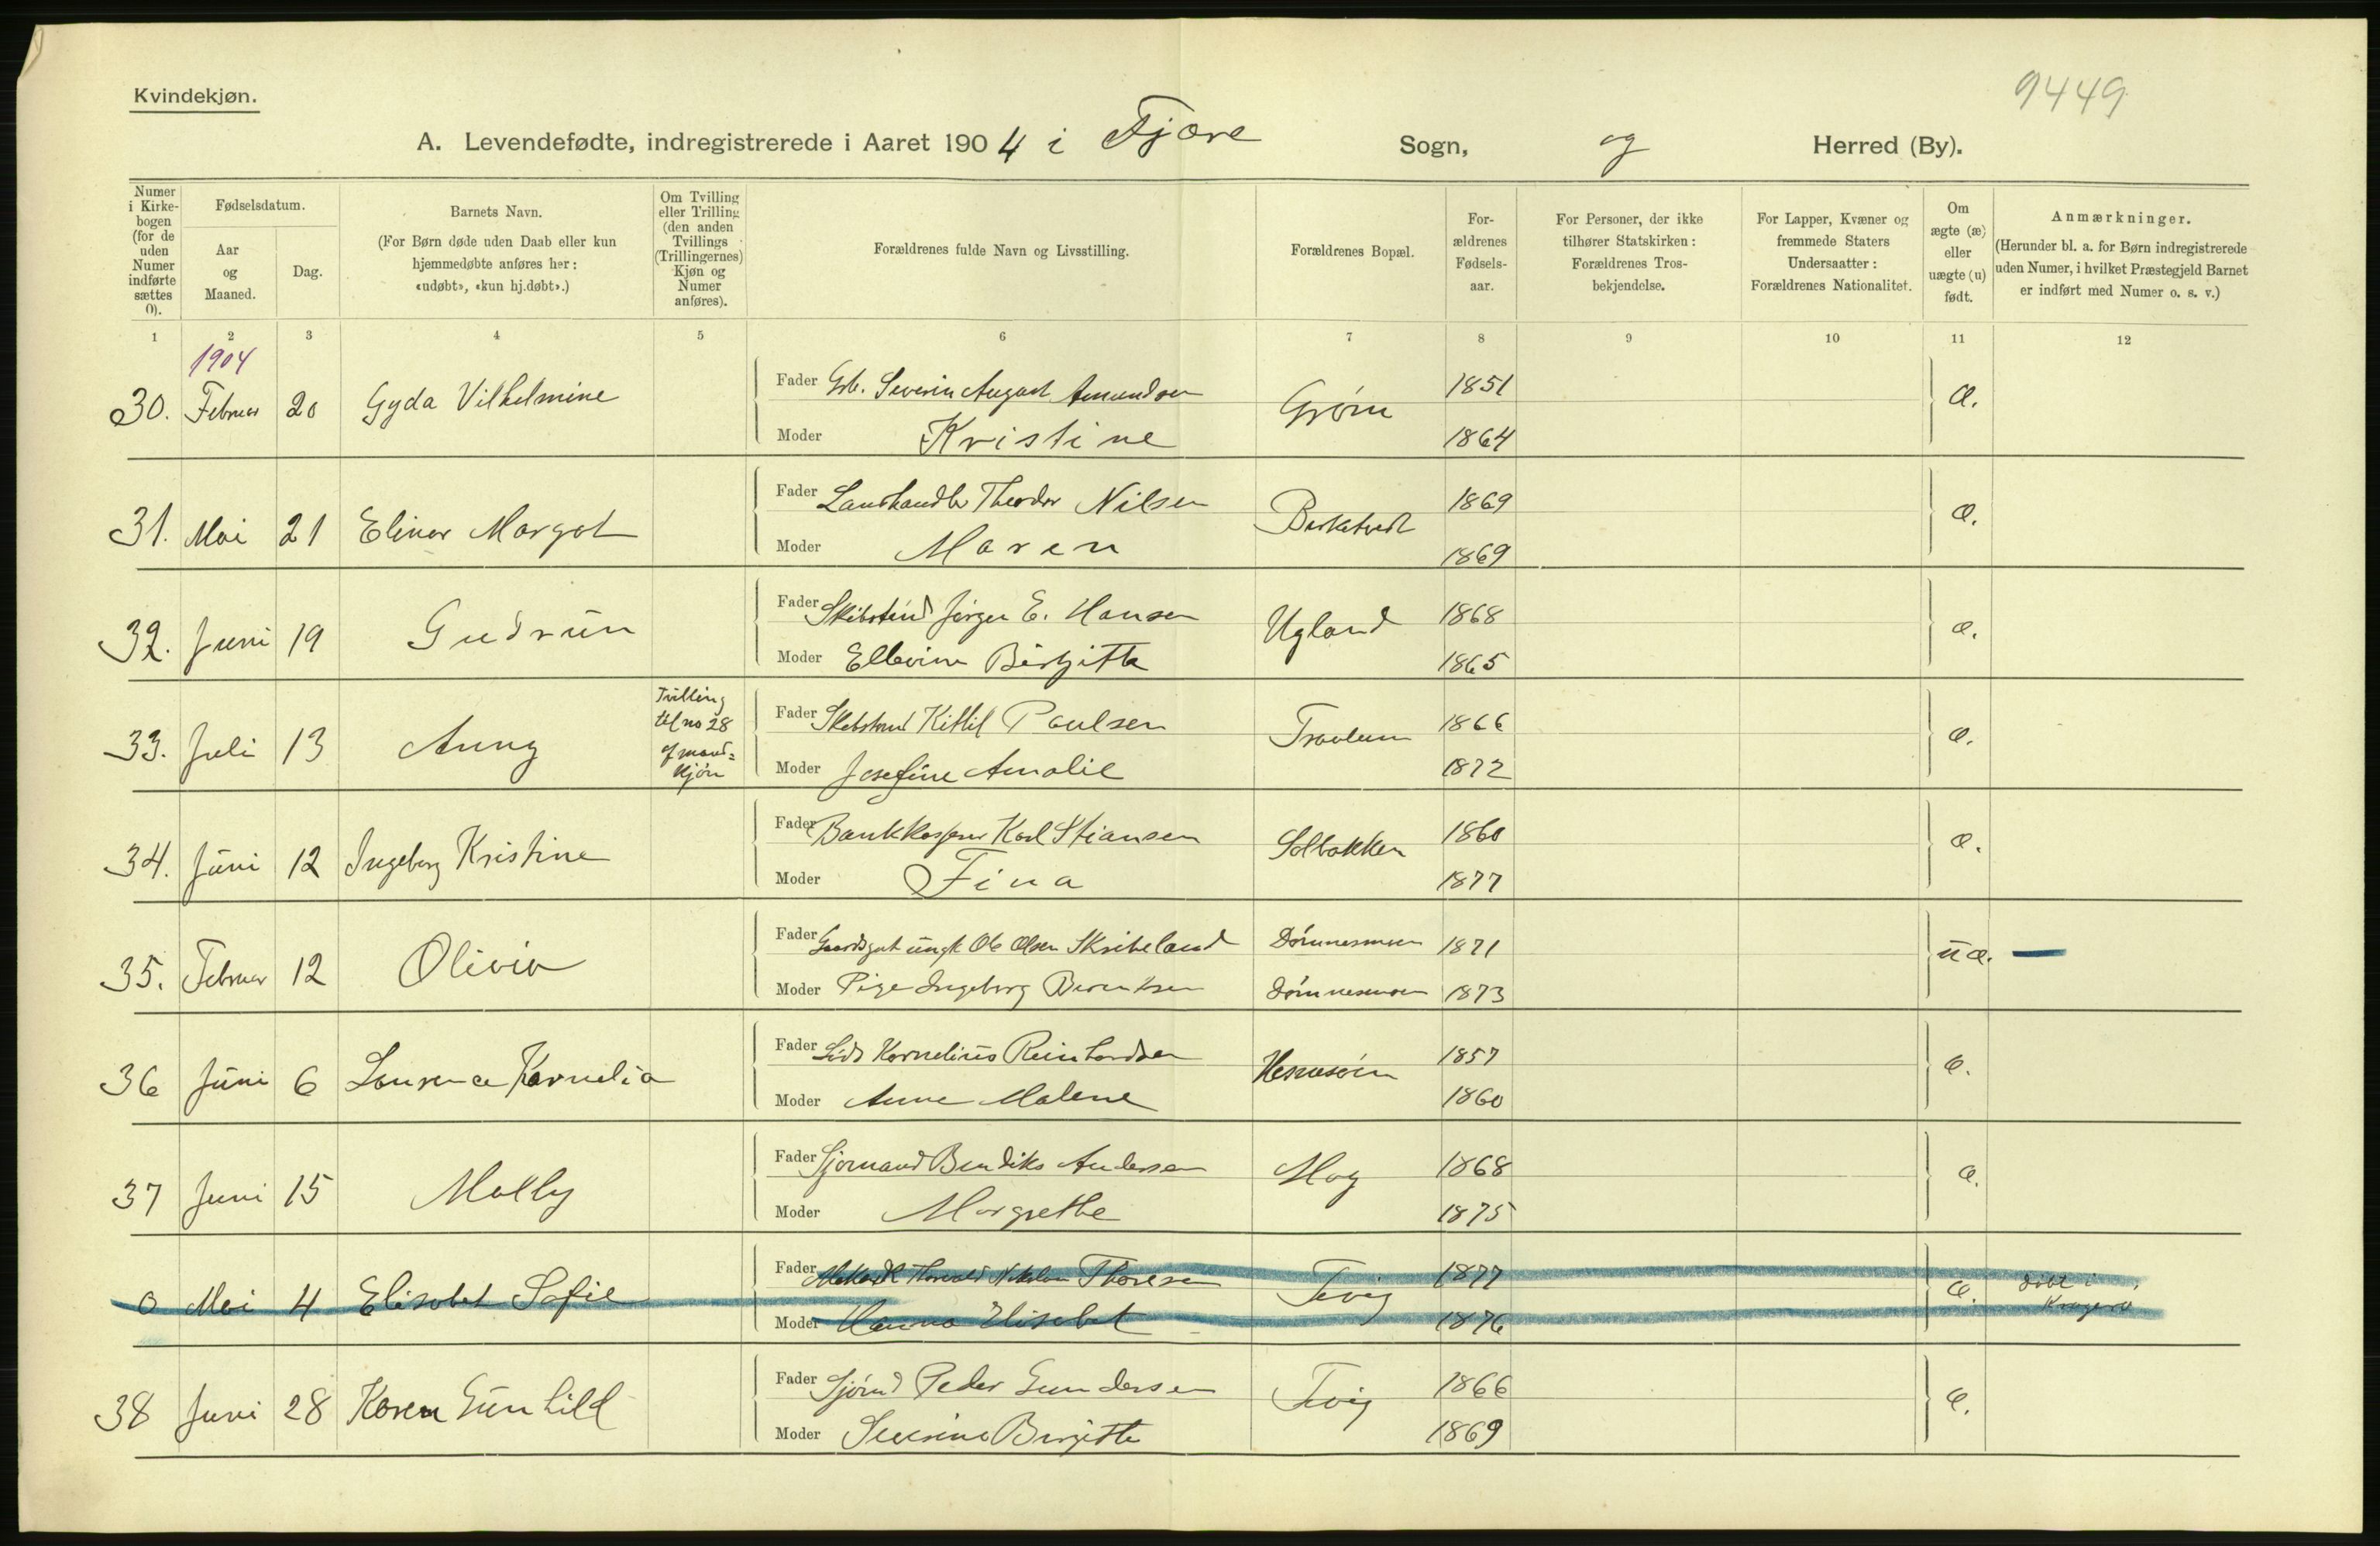 Kvindekjøn.
9449
A. Levendefødte, indregistrerede i Aaret 1904 i Fjære Sogn, og Herred (By).
Numer i Kirke- bogen (for de uden Numer indførte sættes 0).
Fødselsdatum.
Aar og Maaned.
Dag.
Barnets Navn.
(For Børn døde uden Daab eller kun
hjemmedøbte anføres her:
«udøbt», «kun hj.døbt».)
Om Tvilling
eller Trilling
(den anden
Tvillings
(Trillingernes)
Kjøn og
Numer
anføres).
Forældrenes fulde Navn og Livsstilling.
Forældrenes Bopæl.
For-
ældrenes
Fødsels-
aar.
For Personer, der ikke
tilhører Statskirken:
Forældrenes Tros-
bekjendelse.
For Lapper, Kvæner og
fremmede Staters
Undersaatter:
Forældrenes Nationalitet.
Om
ægte (æ)
eller
uægte (u)
født.
Anmærkninger.
(Herunder bl. a. for Børn indregistrerede
uden Numer, i hvilket Præstegjeld Barnet
er indført med Numer o. s. v.)
1 2 3 4 5 6 7 8 9 10 11 12
1904
30. Februar 20 Gyda Vilhelmine Fader Grb. Severin August Amundsen Grøm 1851 æ.
Moder Kristine 1864
31. Mai 21 Elinor Margot Fader Landhandler Theodor Nilsen Birketvedt 1869 æ.
Moder Maren 1869
32. Juni 19 Gudrun Fader Skibstønd Jørgen E. Hansen Ugland 1868 æ.
Moder Ellevine Birgitta 1865
33. Juli 13 Anny Tvilling
til no 28
af mand=
kjøn
Fader Skibstønd Kittil Paulsen 1866 æ.
Moder Josefine Amalie 1872
34. Juni 12 Ingeborg Kristine Fader Bankkasserer Karl Stiansen Solbakken 1860 æ.
Moder Fina 1877
35. Februar 12 Olivia Fader Gaardsgut ungk Ole Olsen Skribeland Dømmesmoen 1871 uæ. —
Moder Pige Ingeborg Berentsen Dømmesmoen 1873
36 Juni 6 Laurence Kornelia Fader Kornelius Reinhardsen Hesnesøen 1857 æ.
Moder Anne Malene 1860
37 Juni 15 Molly Fader Sjømand Bendiks Andersen Moy 1868 æ.
Moder Margrethe 1875
0 Mai 4 Elisabet Sofie Fader Thorvald Nikolai Thorsen Fevig 1877 æ. døbt i
Kragerø
Moder Hanna Elisabet 1876
38 Juni 28 Karen Gunhild Fader Sjømd Peder Gundersen Fevig 1866 æ.
Moder Severine Birgitte 1869